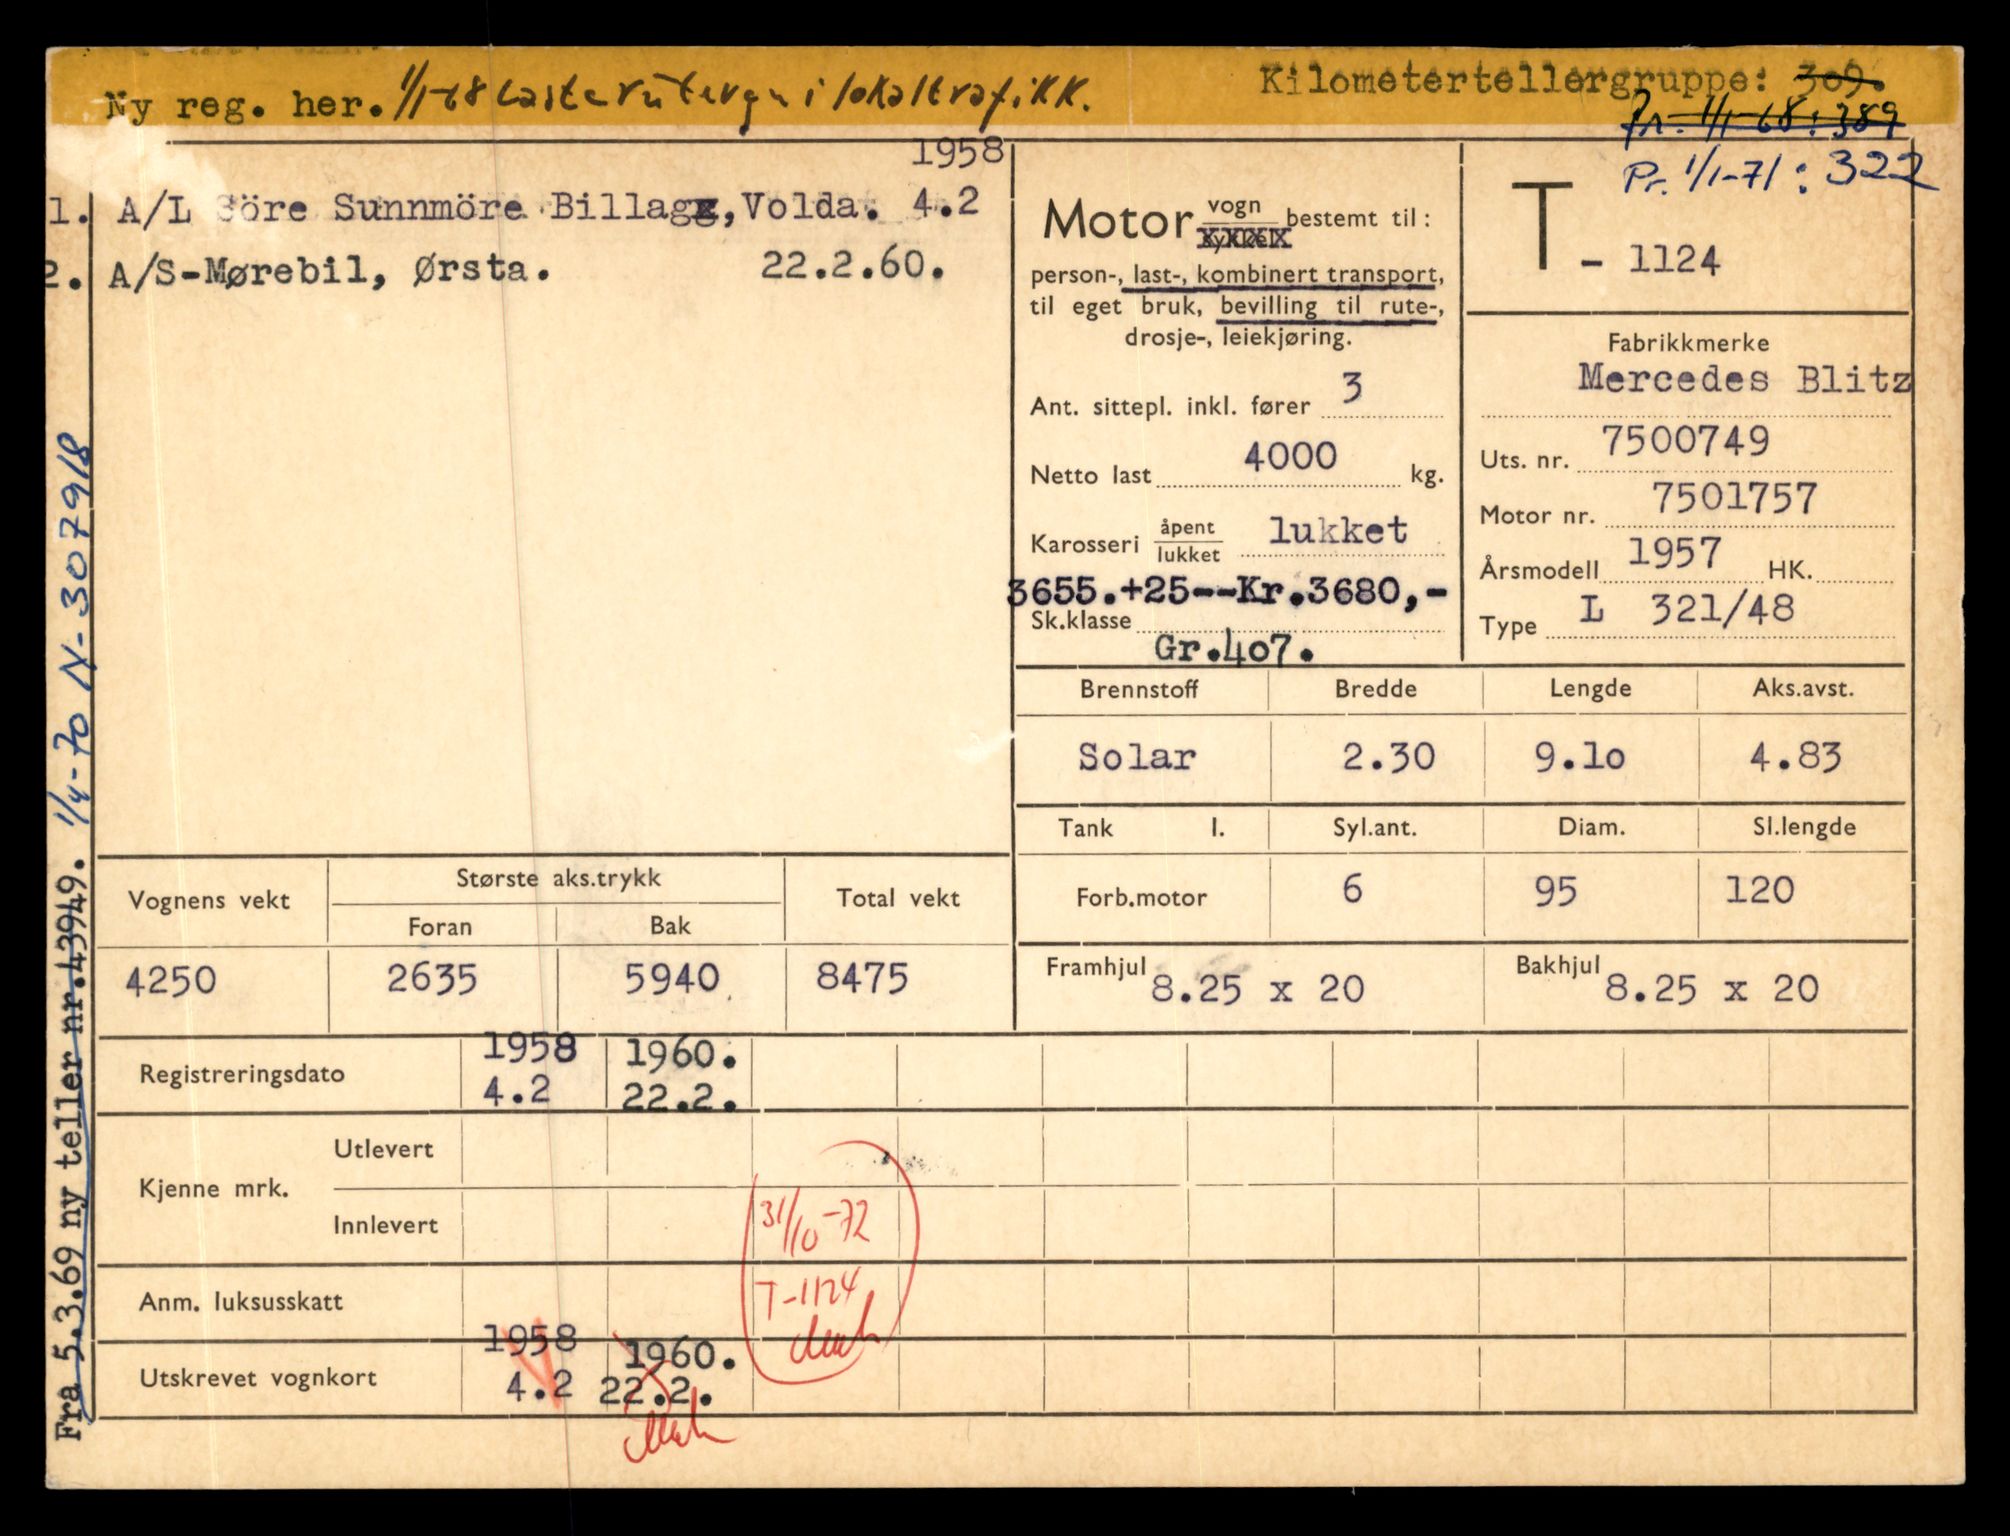 Ny reg. her. 1/1-68 Lasterutevgn i lokaltrafikk.
Kilometertellergruppe: 309.
Pr. 1/1-68: 389
Pr. 1/1-71: 322
1958
1. A/L Söre Sunnmöre Billag, Volda. 4.2
2. A/S-Mørebil, Ørsta. 22.2.60.
Motor vogn bestemt til:
sykkel
person-, last-, kombinert transport,
til eget bruk, bevilling til rute-,
drosje-, leiekjøring.
Ant. sittepl. inkl. fører 3
Netto last 4000 kg.
Karosseri åpent/lukket lukket
3655.+25--Kr.3680,-
Sk.klasse
Gr.407.
T - 1124
Fabrikkmerke
Mercedes Blitz
Uts. nr. 7500749
Motor nr. 7501757
Årsmodell 1957 HK.
Type L 321/48
Brennstoff Bredde Lengde Aks.avst.
Solar 2.30 9.1o 4.83
Tank l. Syl.ant. Diam. Sl.lengde
Forb.motor 6 95 120
Framhjul 8.25 x 20 Bakhjul 8.25 x 20
Vognens vekt Største aks.trykk Total vekt
Foran Bak
4250 2635 5940 8475
Registreringsdato 1958 1960.
4.2 22.2.
Kjenne mrk. Utlevert
Innlevert
31/10-72
Anm. luksusskatt
T-1124
Utskrevet vognkort 1958 1960.
4.2 22.2.
Fra 5.3.69 ny teller nr.43949. 1/4-70 N-307918